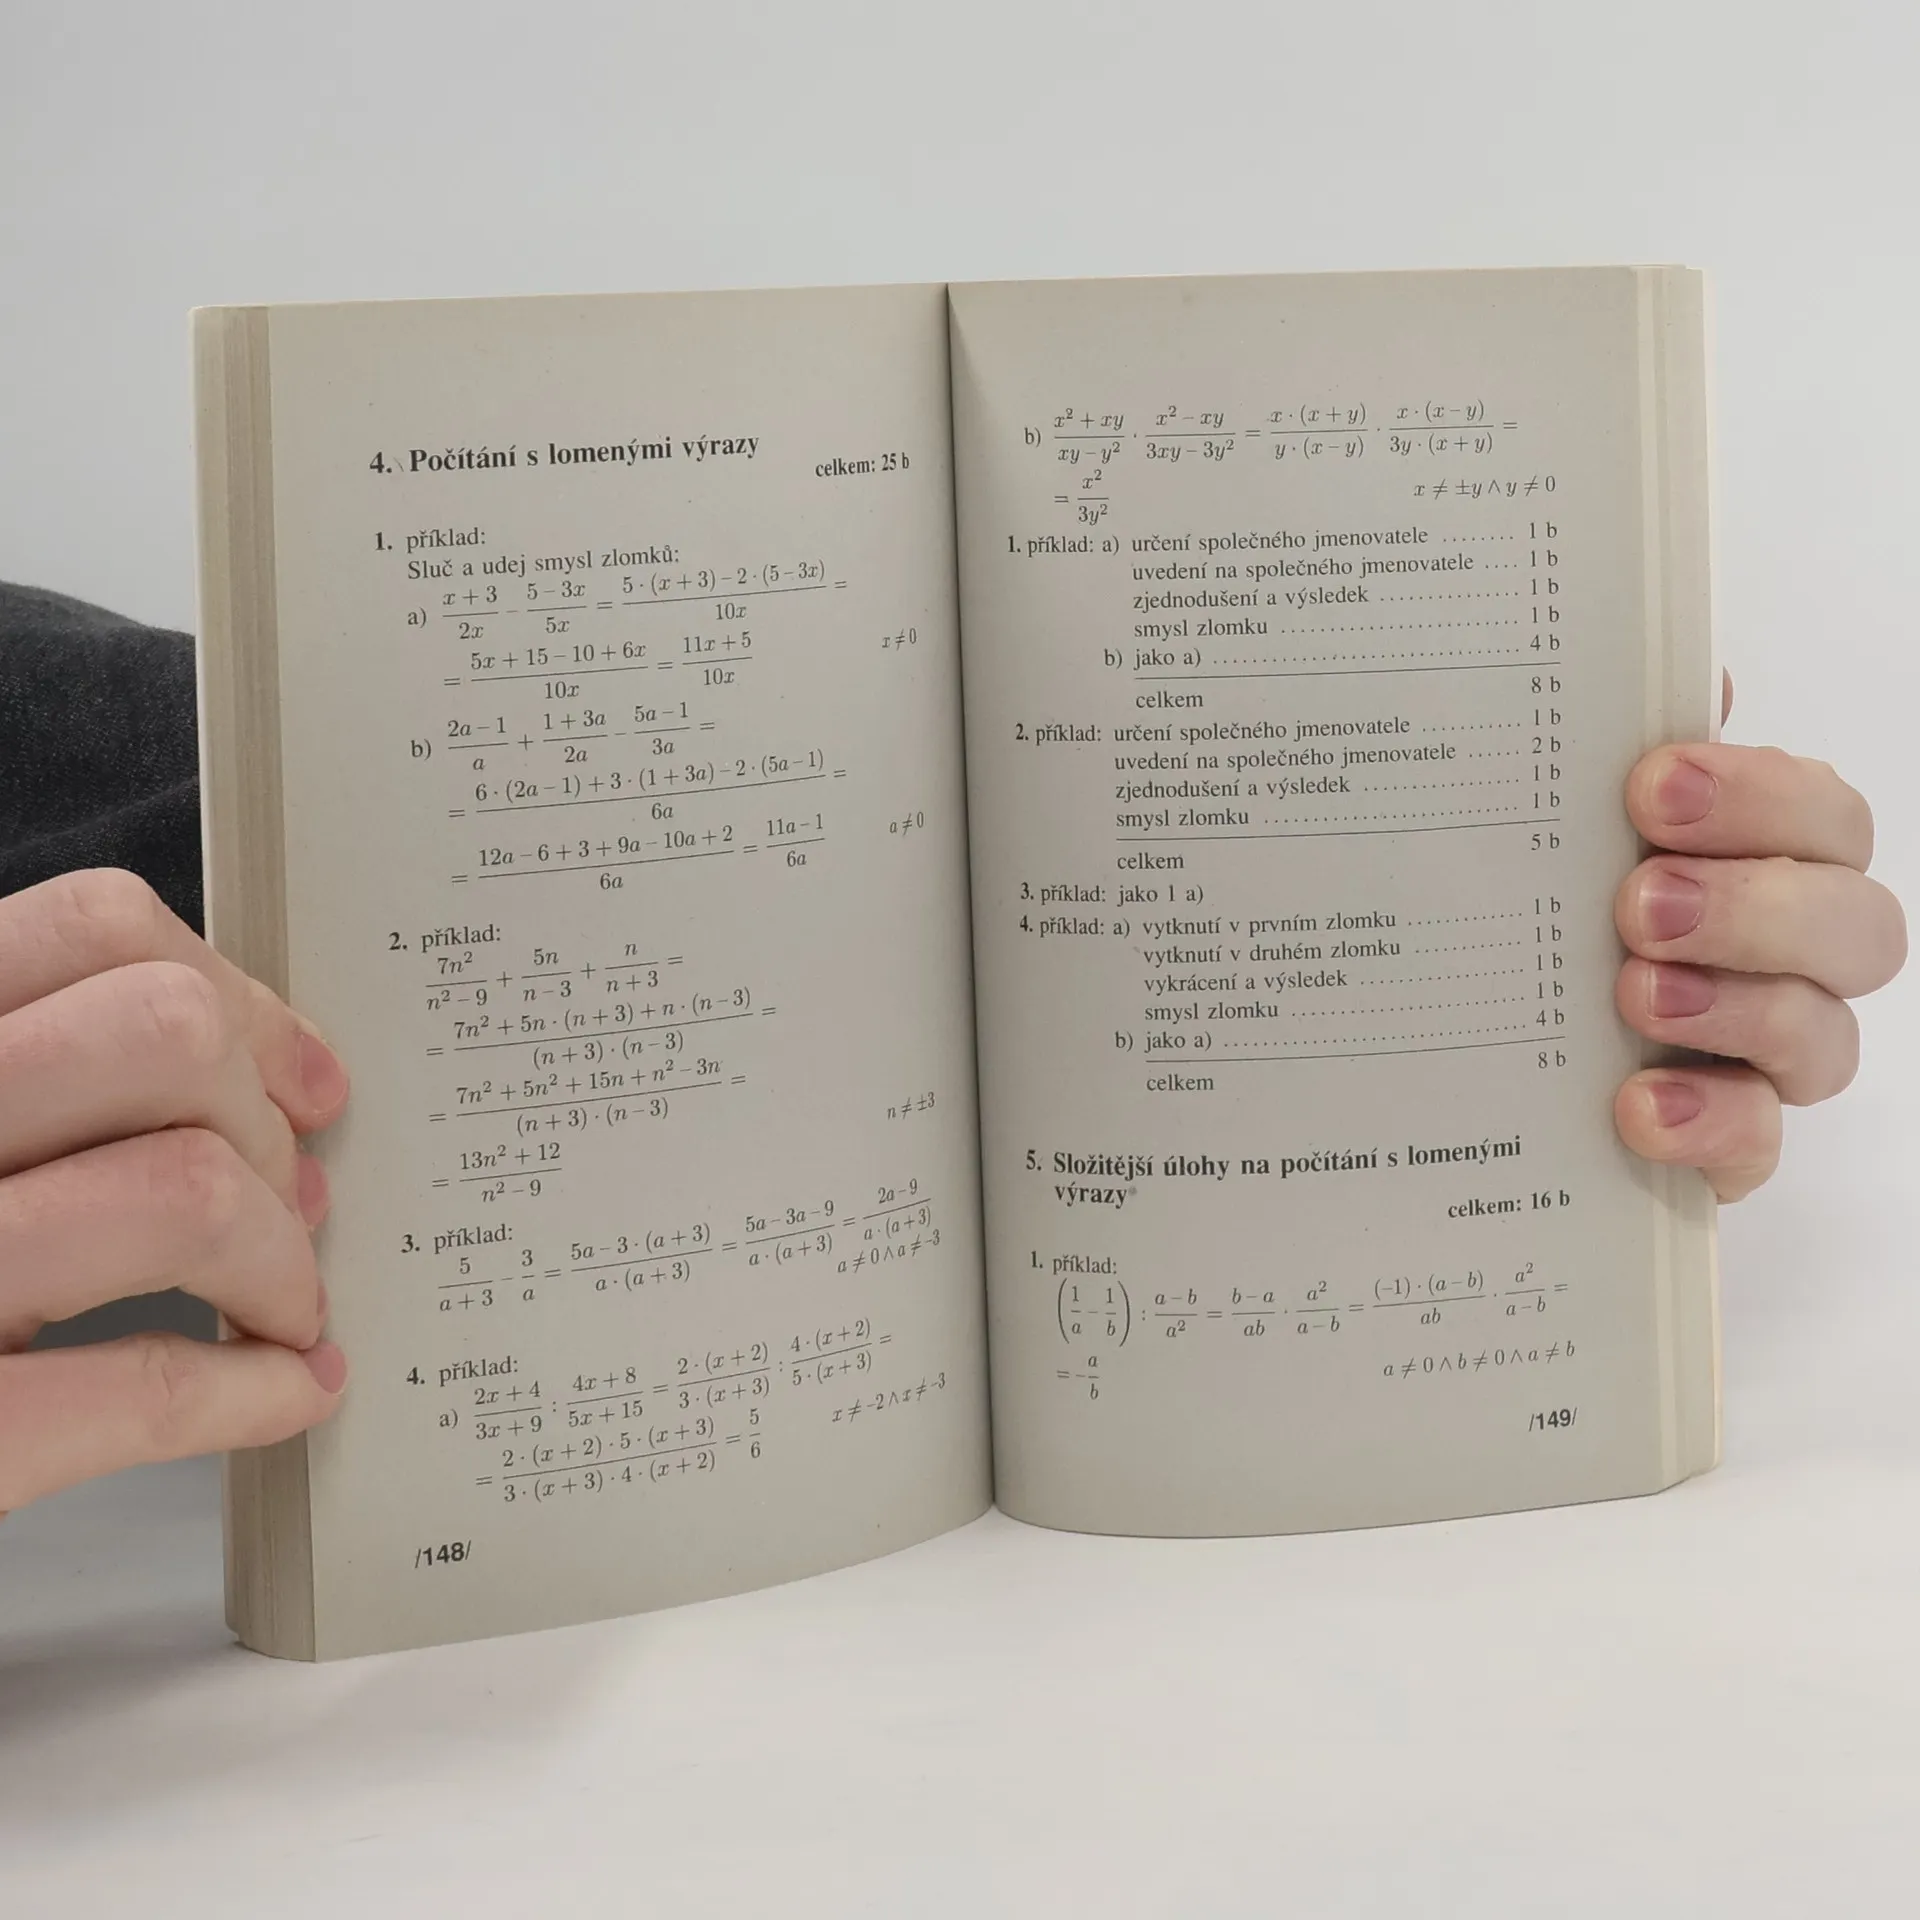 4. Počítání s lomenými výrazy
celkem: 25 b
1. příklad:
Sluč a udej smysl zlomků:
a) (x + 3)/(2x) − (5 − 3x)/(5x) = (5 · (x + 3) − 2 · (5 − 3x))/(10x) =
= (5x + 15 − 10 + 6x)/(10x) = (11x + 5)/(10x) x ≠ 0
b) (2a − 1)/a + (1 + 3a)/(2a) − (5a − 1)/(3a) =
= (6 · (2a − 1) + 3 · (1 + 3a) − 2 · (5a − 1))/(6a) =
= (12a − 6 + 3 + 9a − 10a + 2)/(6a) = (11a − 1)/(6a) a ≠ 0
2. příklad:
7n²/(n² − 9) + 5n/(n − 3) + n/(n + 3) =
= (7n² + 5n · (n + 3) + n · (n − 3))/((n + 3) · (n − 3)) =
= (7n² + 5n² + 15n + n² − 3n)/((n + 3) · (n − 3)) =
= (13n² + 12)/(n² − 9) n ≠ ±3
3. příklad:
5/(a + 3) − 3/a = (5a − 3 · (a + 3))/(a · (a + 3)) = (5a − 3a − 9)/(a · (a + 3)) = (2a − 9)/(a · (a + 3))
a ≠ 0 ∧ a ≠ −3
4. příklad:
a) (2x + 4)/(3x + 9) : (4x + 8)/(5x + 15) = (2 · (x + 2))/(3 · (x + 3)) : (4 · (x + 2))/(5 · (x + 3)) =
= (2 · (x + 2) · 5 · (x + 3))/(3 · (x + 3) · 4 · (x + 2)) = 5/6 x ≠ −2 ∧ x ≠ −3
/148/
b) (x² + xy)/(xy − y²) · (x² − xy)/(3xy − 3y²) = (x · (x + y))/(y · (x − y)) · (x · (x − y))/(3y · (x + y)) =
= x²/(3y²) x ≠ ±y ∧ y ≠ 0
1. příklad: a) určení společného jmenovatele ........ 1 b
uvedení na společného jmenovatele .... 1 b
zjednodušení a výsledek ............... 1 b
smysl zlomku ......................... 1 b
b) jako a) ................................ 4 b
celkem 8 b
2. příklad: určení společného jmenovatele ........... 1 b
uvedení na společného jmenovatele ...... 2 b
zjednodušení a výsledek ................. 1 b
smysl zlomku ........................... 1 b
celkem 5 b
3. příklad: jako 1 a)
4. příklad: a) vytknutí v prvním zlomku ............. 1 b
vytknutí v druhém zlomku ............ 1 b
vykrácení a výsledek .................. 1 b
smysl zlomku ......................... 1 b
b) jako a) ................................ 4 b
celkem 8 b
5. Složitější úlohy na počítání s lomenými
výrazy
celkem: 16 b
1. příklad:
(1/a − 1/b) : (a − b)/a² = (b − a)/(ab) · a²/(a − b) = ((−1) · (a − b))/(ab) · a²/(a − b) =
= −a/b a ≠ 0 ∧ b ≠ 0 ∧ a ≠ b
/149/